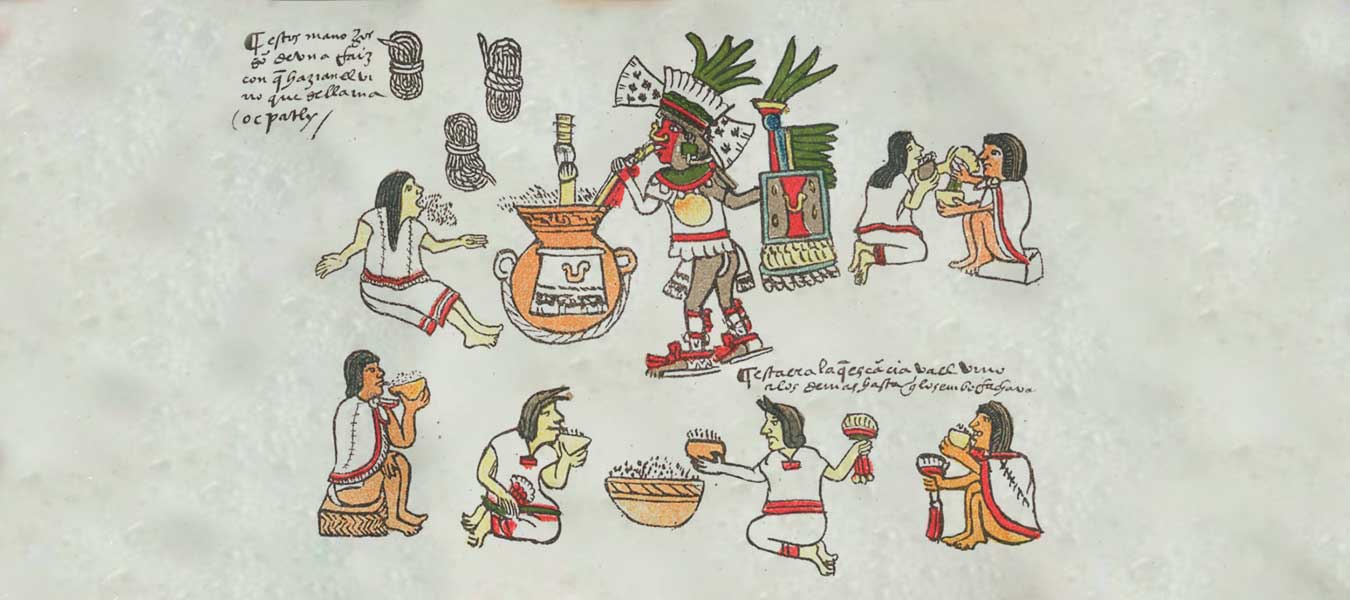 estos mano Jos
de vna raiz
con q̃ hazian el vi
no que se llama
ocpatly /
esta era la q̃ escācia va el vino
a los demas hasta q̃ los emborachava